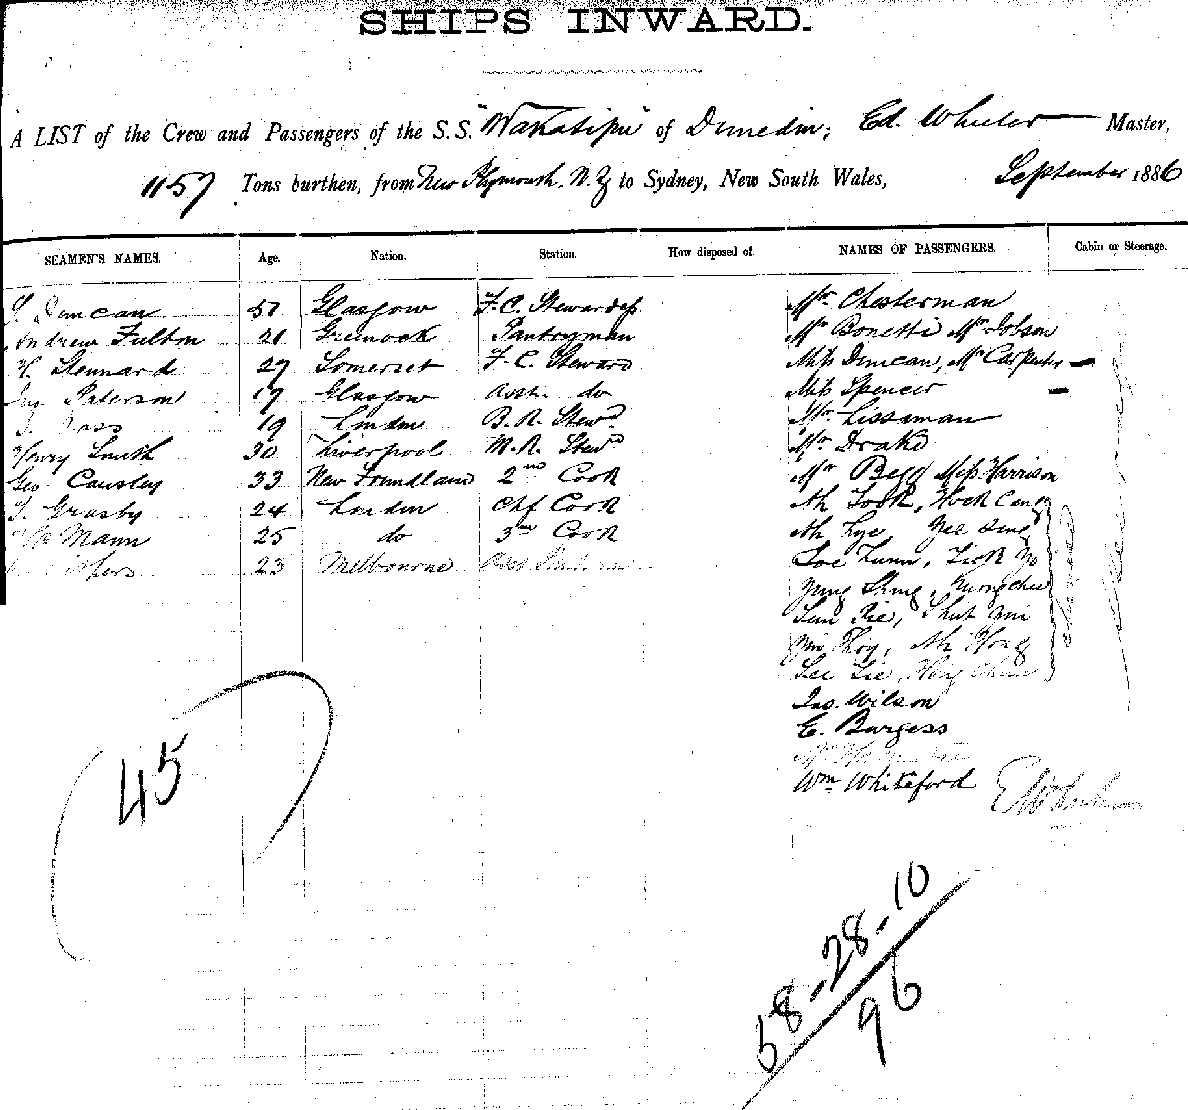 SHIPS INWARD.
A LIST of the Crew and Passengers of the S.S. "Wakatipu" of Dunedin, Ed. Wheeler Master,
1157 Tons burthen, from New Plymouth N.Z to Sydney, New South Wales, September 1886
SEAMEN'S NAMES. Age. Nation. Station. How disposed of. NAMES OF PASSENGERS. Cabin or Steerage.
Duncan 51 Glasgow F.C. Stewardess Mr. Chesterman
Andrew Fulton 21 Greenock Pantryman Mr Bonetti Mr Jobson
H. Stennard 27 Somerset F. C. Steward Miss Duncan, Mr Carpenter
Jas Paterson 17 Glasgow Asst. do Miss Spencer
19 London B. R. Stewd Mr Lissaman
Henry Smith 30 Liverpool M. R. Stewd Mr Drake
Geo Causley 33 New Foundland 2nd Cook Mr Begg Miss Harrison
T. Grasby 24 London Chf Cook Ah Look, Hock Cong
Mann 25 do 3rd Cook Ah Lye Gee Sing
23 Melbourne Loe Lunn,
Yung Shing,
Ah Hong
Chinese
Jas. Wilson
E. Burgess
Wm Whiteford
45
58-28-10
96